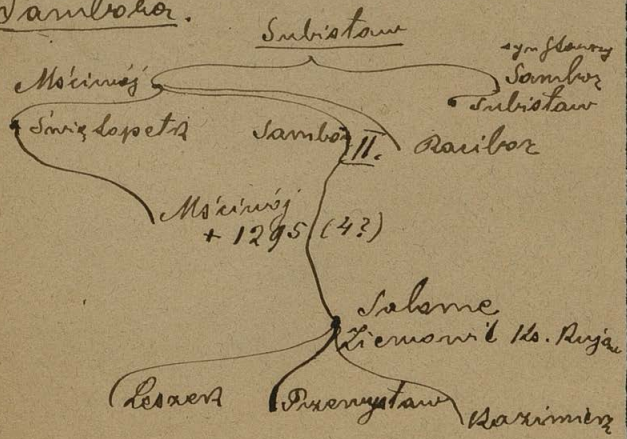 Sambora.
Subisław
syn starszy
Mściwój
Sambor
Subisław
Świętopełk
Sambor II.
Racibor
Mściwój
+ 1295 (4?)
Salome
Ziemowit Ks. Kujaw
Leszek
Przemysław
Kazimierz